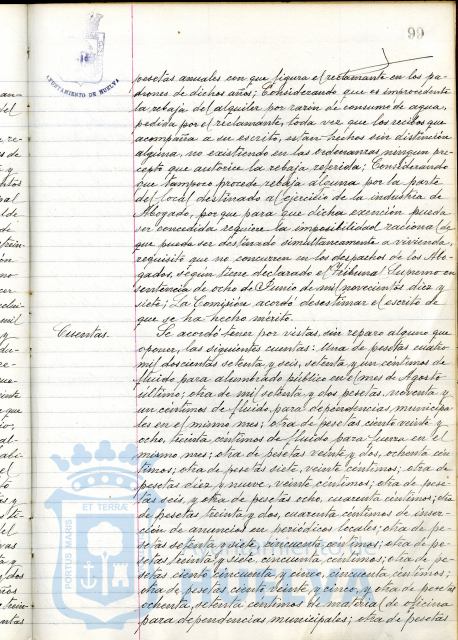 99
AYUNTAMIENTO DE HUELVA
pesetas anuales con que figura el reclamante en los pa-
drones de dichos años; Considerando que es improcedente
la rebaja del alquiler por razón de consumo de agua,
pedida por el reclamante, toda vez que los recibos que
acompaña a su escrito, estan hechos sin distinción
alguna, no existiendo en las ordenanzas ningun pre-
cepto que autorice la rebaja referida; Considerando
que tampoco procede rebaja alguna por la parte
del local destinado al ejercicio de la industria de
Abogado, porque para que dicha exención pueda
ser concedida requiere la imposibilidad racional de
que pueda ser destinado simultaneamente a vivienda,
requisito que no concurren en los despachos de los Abo-
gados, según tiene declarado el Tribunal Supremo en
sentencia de ocho de Junio de mil novecientos diez y
siete; La Comisión acordó desestimar el escrito de
que se ha hecho mérito.
Cuentas.
Se acordó tener por vistas, sin reparo alguno que
oponer, las siguientes cuentas: Una de pesetas cuatro
mil doscientas setenta y seis, setenta y un céntimos de
fluido para alumbrado público en el mes de Agosto
último; otra de mil setenta y dos pesetas, noventa y
un céntimos de fluido, para dependencias municipa-
les en el mismo mes; otra de pesetas ciento veinte y
ocho, treinta céntimos de fluido para fuerza en el
mismo mes; otra de pesetas veinte y dos, ochenta cén-
timos; otra de pesetas siete, veinte céntimos; otra de
pesetas diez y nueve, veinte céntimos; otra de pese-
tas seis, y otra de pesetas ocho, cuarenta céntimos; otra
de pesetas treinta y dos, cuarenta céntimos de inser-
ción de anuncios en periódicos locales; otra de pe-
setas setenta y siete, cincuenta céntimos; otra de pe-
setas treinta y siete, cincuenta céntimos; otra de pe-
setas ciento cincuenta y cinco, cincuenta céntimos;
otra de pesetas ciento veinte y cinco, y otra de pesetas
ochenta, setenta céntimos de material de oficina
para dependencias municipales; otra de pesetas
PORTUS MARIS
ET TERRA
Ayuntamiento de